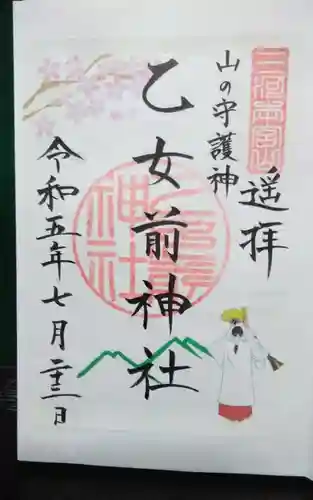 山の守護神
遥拝
乙女前神社
令和五年七月二十三日